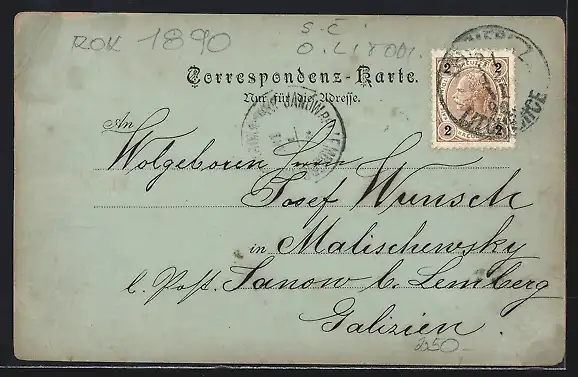 ROK 1890
S.Č.
O. LITOM.
Correspondenz-Karte.
Nur für die Adresse.
2 2
2 2
An
Wolgeboren Herrn
Josef Wunsch
in Malischewsky
l. Post. Janow b. Lemberg
Galizien.
2250-